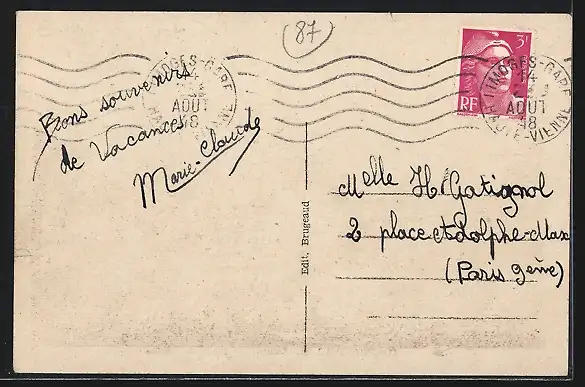 (87)
LIMOGES-GARE
14
AOUT
48
HAUTE-VIENNE
3F
RF
LIMOGES-GARE
14
AOUT
48
HAUTE-VIENNE
Bons souvenirs
de Vacances
Marie-Claude
Edit. Brugeaud
Melle H. Gatignol
2 place Adolphe-Max
(Paris 9ème)